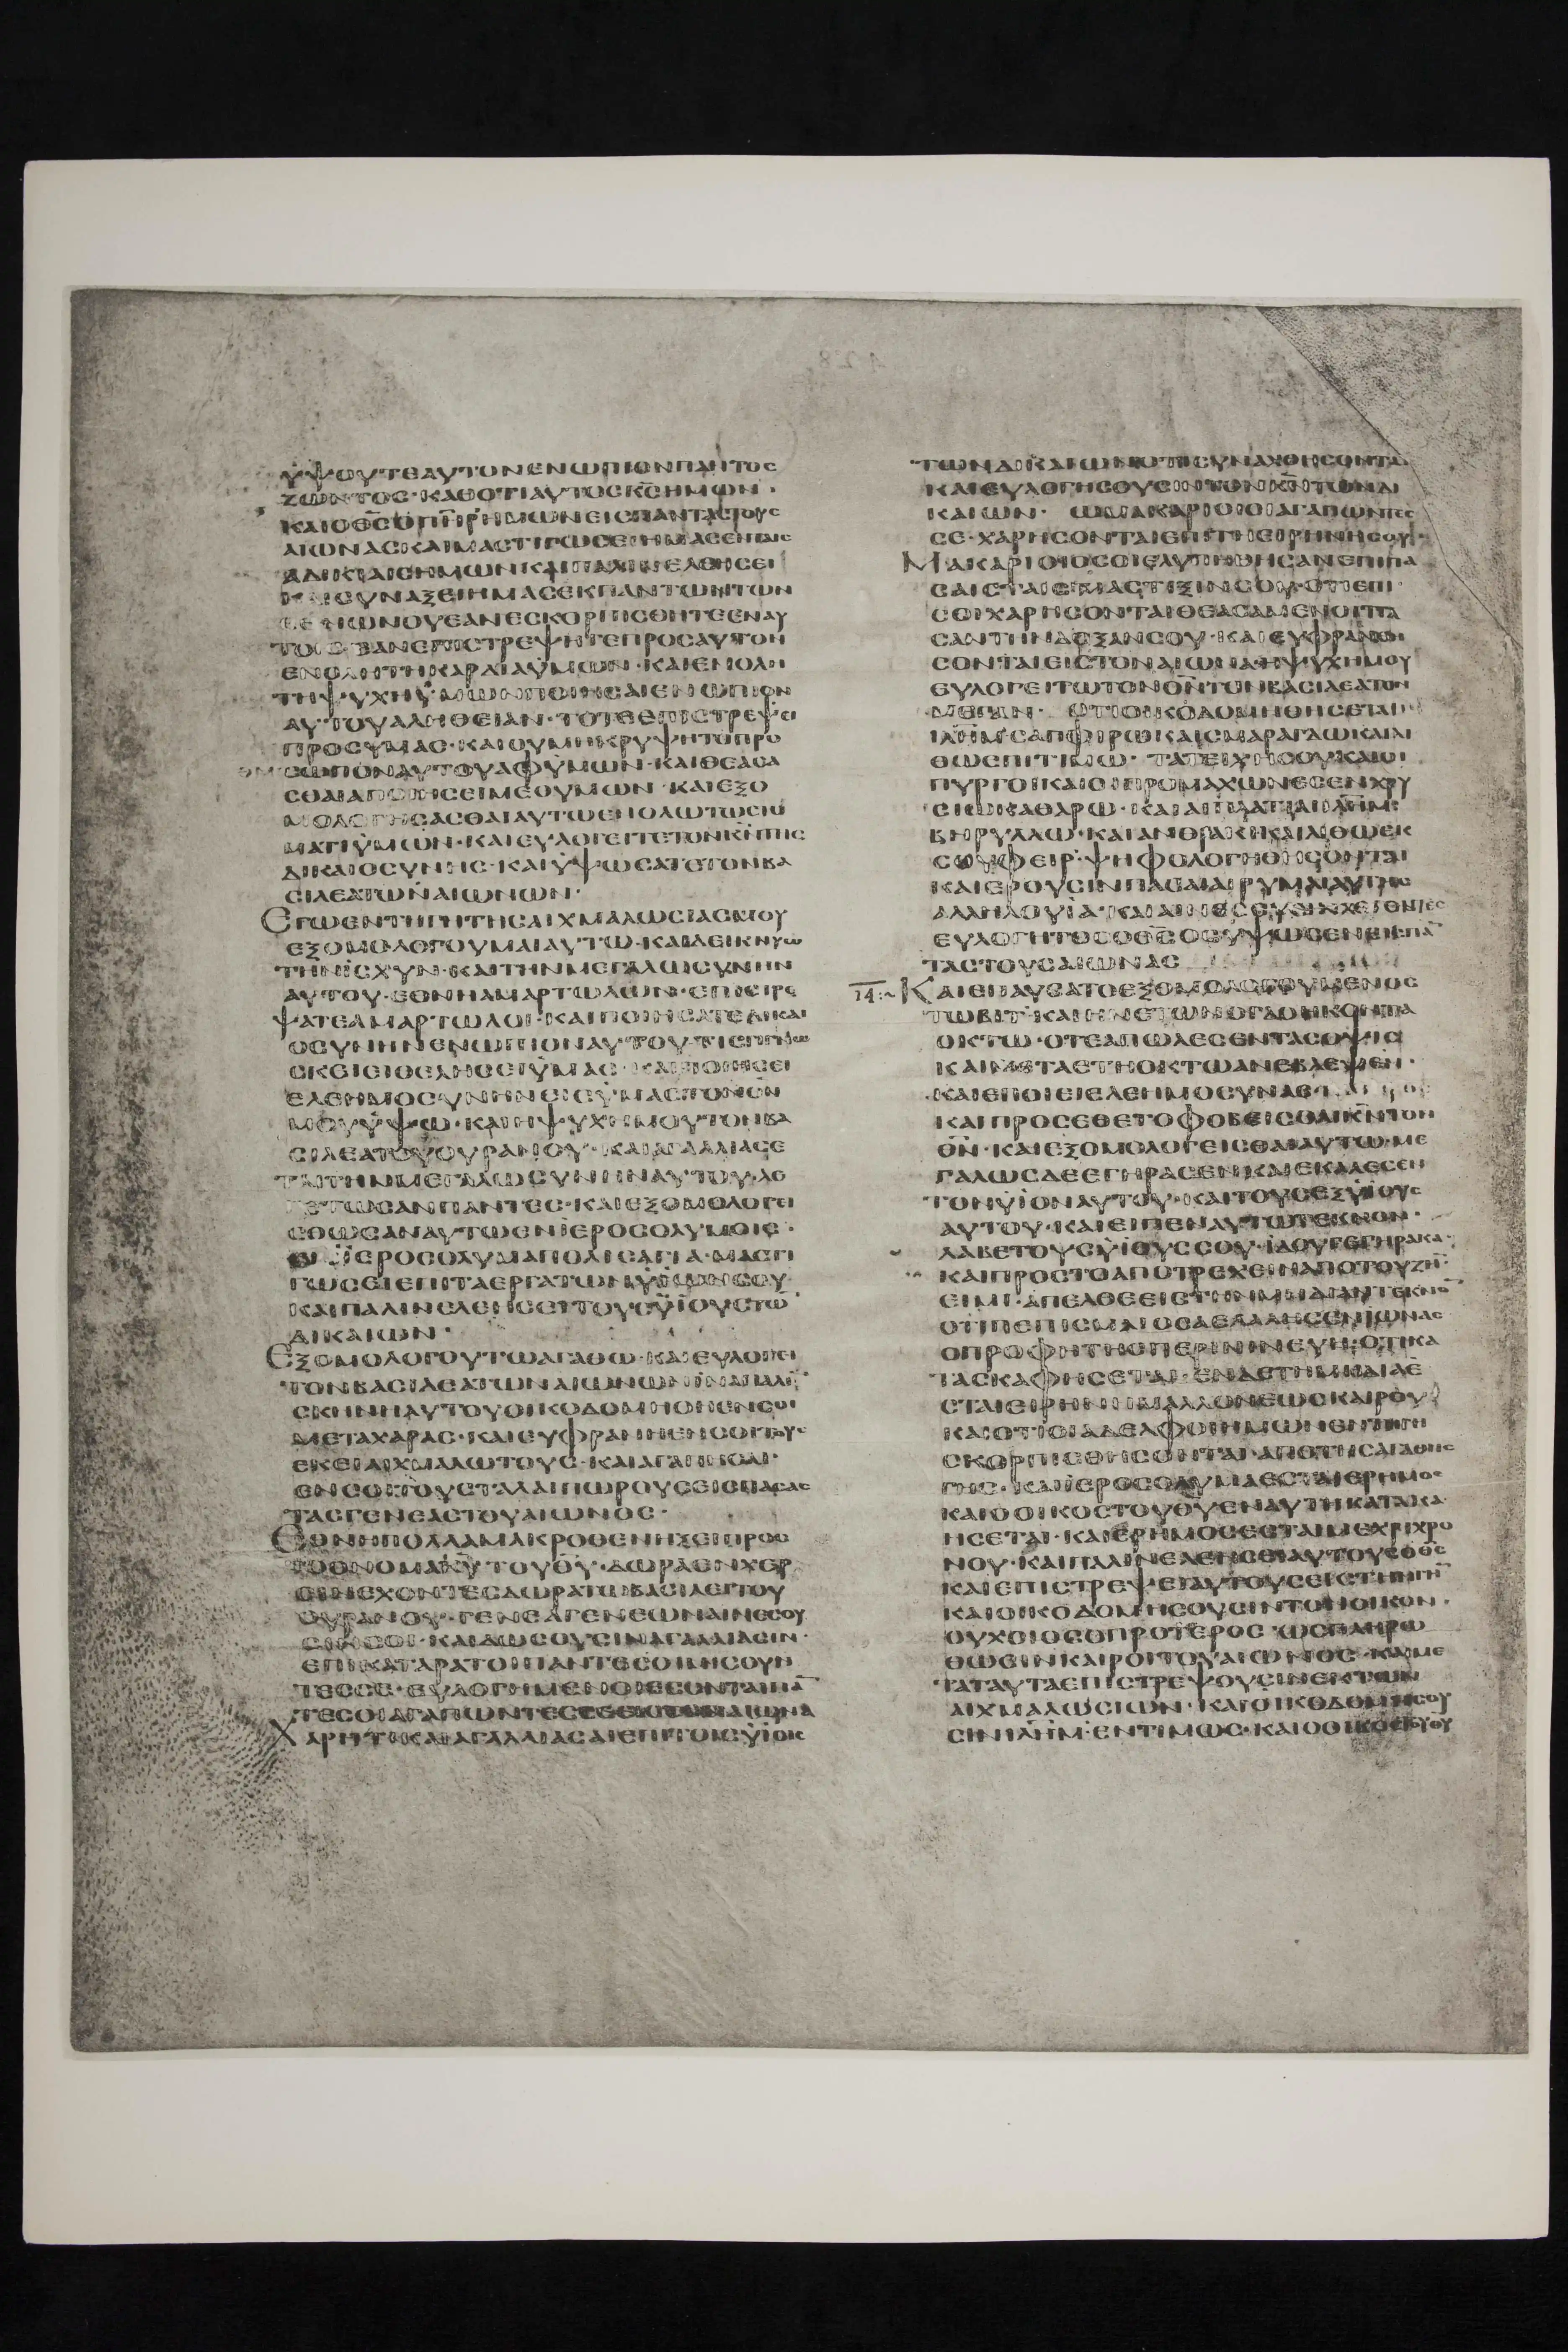 ὑψουτεαυτονενωπιονπαντος
ζωντος·καθοτιαυτοςκ̅ς̅ημων·
καιοθ̅ς̅οπ̅η̅ρ̅ημωνειςπανταςτους
αιωναςκαιμαστιγωσειημασενταις
αδικιαισημωνκαιπαλινελεησει
καισυναξειημασεκπαντωντων
εθνωνουεανεσκορπισθητεεναυ
τοισεανεπιστρεψητεπροσαυτον
ενοληττηκαρδιαυμων·καιενολη
τηψυχηυμωνποιησαιενωπιον
αυτουαληθειαν·τοτεεπιστρεψει
προσυμας·καιουμηκρυψητοπρο
σωπον
αυτουαφυμων·καιθεασα
σθαιαποιησειμεθυμων·καιεξο
μολογησασθαιαυτωενολωτωστο
ματιυμων·καιευλογειτετονκ̅ν̅της
δικαιοσυνης·καιυψωσατετονβα
σιλεατωναιωνων·
Εγωεντηγητησαιχμαλωσιασμου
εξομολογουμαιαυτω·καιδεικνυω
τηνισχυν·καιτηνμεγαλωσυνην
αυτου·εθνηαμαρτωλων·επιστρε
ψατεαμαρτωλοι·καιποιησατεδικαι
οσυνηνενωπιοναυτου·τισγινω
σκειειθελησειυμας·καιποιησει
ελεημοσυνηνεισυμαςτονθ̅ν̅
μουυψω·καιηψυχημουτονβα
σιλεατουουρανου·καιαγαλλιασε
ταιτηνμεγαλωσυνηναυτου·λε
γετωσανπαντες·καιεξομολογει
σθωσαναυτωενιεροσολυμοις·
ιεροσολυμαπολισαγια·μαστι
γωσειεπιταεργατωνυιωνσου·
καιπαλινελεησειτουςυιουστω̅
δικαιων·
Εξομολογουτωαγαθω·καιευλογει
τονβασιλεατωναιωνωνιναπαλι̅·
σκηνηαυτουοικοδομηθηενσοι
μεταχαρας·καιευφρανηενσοιτους
εκειαιχμαλωτους·καιαγαπησαι·
ενσοιτουςταλαιπωρουςεισπασας
τασγενεαςτουαιωνος·
Εθνηπολλαμακροθενηξειπρος
τοονομακ̅υ̅τουθ̅υ̅·δωραενχερ
σινεχοντεσδωρατωβασιλειτου
ουρανου·γενεαιγενεωναινεσου
σινσοι·καιδωσουσιναγαλλιασιν·
επικαταρατοιπαντεσοιμισουν
τεσσε·ευλογημενοιεσονταιπα̅
τεσοιαγαπωντεςσεεισ τοναιωνα
Χαρηθικαιαγαλλιασαιεπιτοιςυιοις
τωνδικαιωνοτισυναχθησονται
καιευλογησουσιντονκ̅ν̅τωνδι
καιων· ωμακαριοιοιαγαπωντες
σε·χαρησονταιεπιτηειρηνησου·
Μακαριοιοσοιελυπηθησανεπιπα
σαισταιςμαστιξινσου·οτιεπι
σοιχαρησονταιθεασαμενοιπα
σαντηνδοξανσου·καιευφρανθη
σονταιειςτοναιωνα·ηψυχημου
ευλογειτωτονθ̅ν̅τονβασιλεατον
μεγαν· οτιοικοδομηθησεται
ιλ̅η̅μ̅σαπφιρωκαισμαραγδωκαιλι
θωεντιμω· τατειχησουκαιοι
πυργοικαιοιπρομαχωνεςενχρυ
σιωκαθαρω·καιαιπλατειαιιλ̅η̅μ̅
βηρυλλω·καιανθρακικαιλιθωεκ
σουφειρ·ψηφολογηθησονται
καιερουσινπασαιαιρυμαιαυτης
αλληλουια·καιαινεσουσινλεγοντες
ευλογητοσοθ̅ς̅οςυψωσενπα̅
ταςτουςαιωνας
ι̅δ̅:~ Καιεπαυσατοεξομολογουμενος
τωβιτ·καιηνετωνογδοηκοντα
οκτω·οτεαπωλεσεντασοψις
καιμεταετηοκτωανεβλεψεν·
καιεποιειελεημοσυνας·
καιπροσεθετοφοβεισθαικ̅ν̅τον
θ̅ν̅·καιεξομολογεισθαιαυτω·με
γαλωσδεεγηρασεν·καιεκαλεσεν
τονυιοναυτου·καιτουςεξυιους
αυτου·καιειπεναυτωτεκνον·
λαβετουςυιουςσου·ιδουγεγηρακα·
καιπροςτοαποτρεχειναποτουζην
ειμι·απελθεειςτηνμηδιαντεκνον
οτιπεπισμαιοσαελαλησενιωνας
οπροφητηςπερινινευη·οτικα
τασκαφησεται·ενδετημηδιαε
σταιειρηνημαλλονεωσκαιρου
καιοτιοιαδελφοιημωνεντηγη
σκορπισθησονται·αποτησαγαθης
γης·καιιεροσολυμαεσταιερημος
καιοοικοςτουθ̅υ̅εναυτηκατακα
ησεται·καιερημοςεσταιμεχριχρο
νου·καιπαλινελεησειαυτουςοθ̅ς̅
καιεπιστρεψειαυτουςειςτηνγην
καιοικοδομησουσιντονοικον·
ουχοιοσοπροτερος·ωςπληρω
θωσινκαιροιτουαιωνος·καιμε
ταταυταεπιστρεψουσινεκτων
αιχμαλωσιων·καιοικοδομησου
σινιλ̅η̅μ̅·εντιμως·καιοοικοςτουθυ